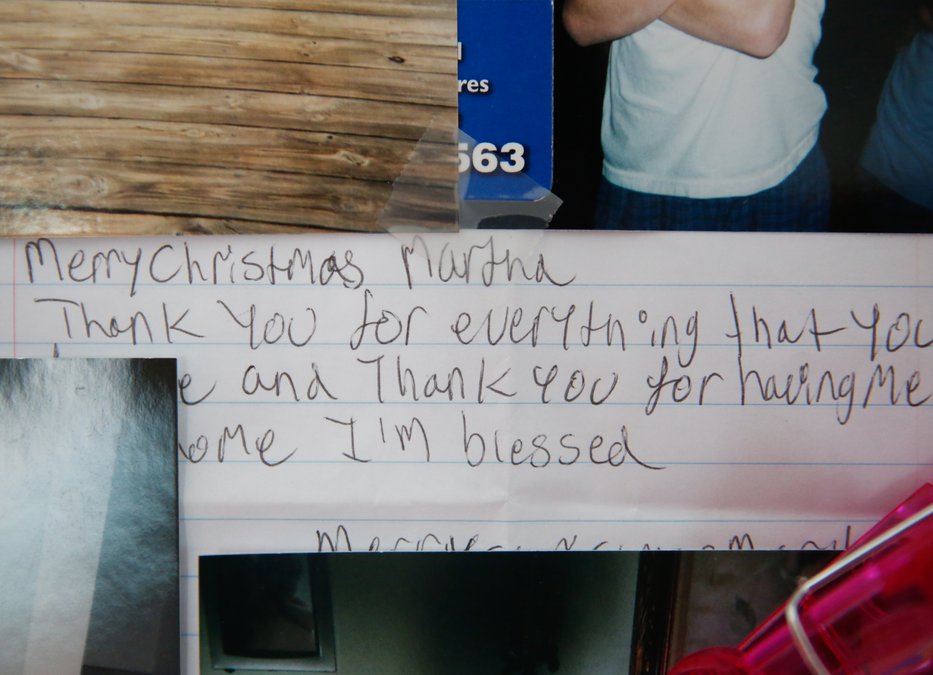 res
563
Merry Christmas Martha
Thank You for everything that You
e and Thank You for having Me
ome I'M blessed